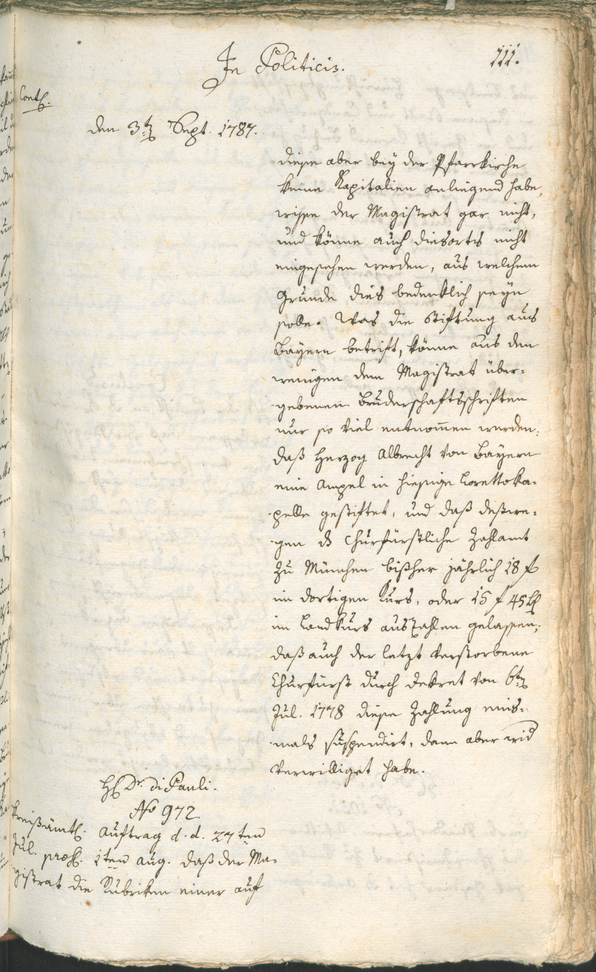 In Politicis.
111.
Contt.
den 3ten Sept. 1787.
diese aber bey der Pfarrkirche
keine Kapitalien anliegend habe,
wisse der Magistrat gar nicht,
und könne auch diesorts nicht
eingesehen werden, aus welchem
Grunde dies bedenklich seyn
solle. Was die Stiftung aus
Bayern betrift, könne aus den
wenigen dem Magistrat über-
gebenen Bruderschaftsschriften
nur so viel entnommen werden,
daß Herzog Albrecht von Bayern
eine Ampel in hiesige Lorettoka-
pelle gestiftet, und daß deßwe-
gen das Churfürstliche Zahlamt
zu München bißher jährlich 18 f
im dortigen Kurs, oder 15 f 45 kr
im Landkurs auszahlen gelassen;
daß auch der letzt verstorbene
Churfürst durch Dekret von 6ten
Jul. 1778 diese Zahlung eins-
mals suspendirt, dann aber wid
verwilliget habe.
H Dr. di Pauli.
No 972
Kreißämtl. Auftrag d. d. 27ten
Jul. pros. 1ten Aug. daß der Ma-
gistrat die Rubriken einer auf